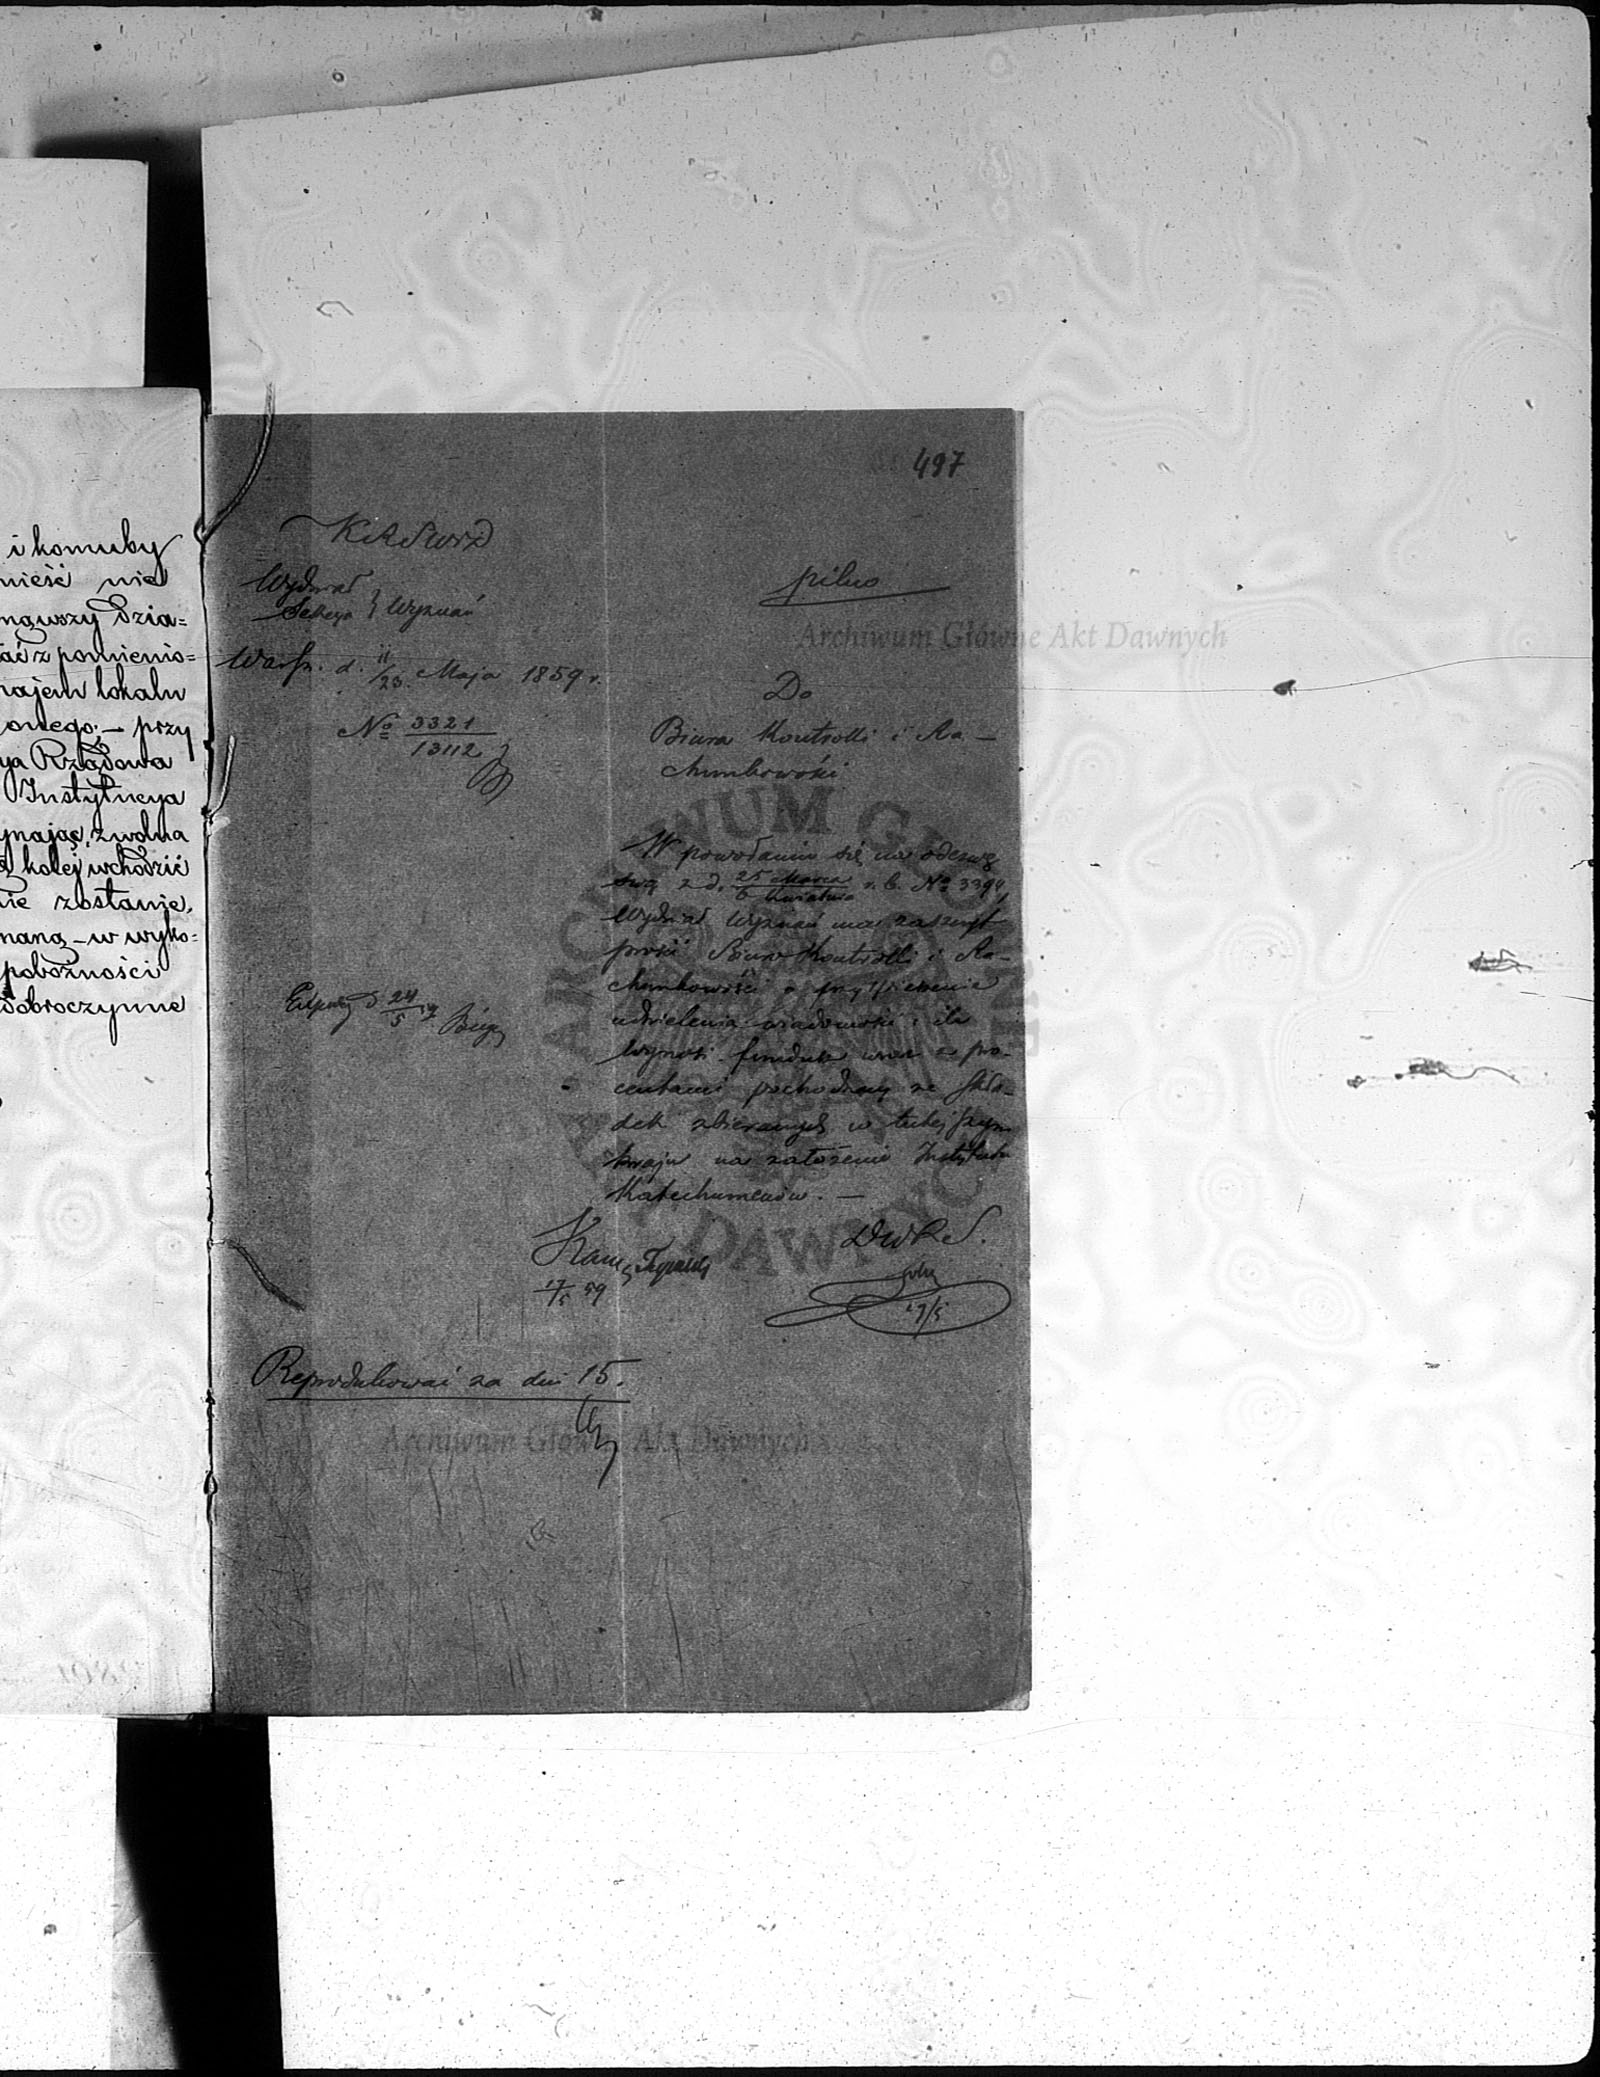 i komuby
nieść nie
nguszy dzia=
ać z pomienio=
najem lokalu
onego; — przy
ya Rządowa
Instytucya
ynając, zwolna
kolej wchodzić
nie zostanie,
naną – w wyko=
pobożności
dobroczynne
497
KRSWRD
Wydział
Sekcya } Wyznań
Warsz. d. 11/23 Maja 1859 r.
No 3321/13112
pilno
Do
Biura Kontrolli i Ra-
chunkowości
W powołaniu się na odezwę
swą z d. 25 Marca/6 Kwietnia r. b. No 3394,
Wydział Wyznań ma zaszczyt
prosić Biuro Kontrolli i Ra-
chunkowości o przyspieszenie
udzielenia wiadomości: ile
wynosi fundusz wraz z pro-
centami pochodzący ze skła-
dek zbieranych w tutejszym
kraju na założenie Instytutu
Katechumenów. —
24/5
DWRS.
17/5 59
17/5
Reprodukować za dni 15.
Archiwum Główne Akt Dawnych
ARCHIWUM GŁÓWNE AKT DAWNYCH
Archiwum Główne Akt Dawnych